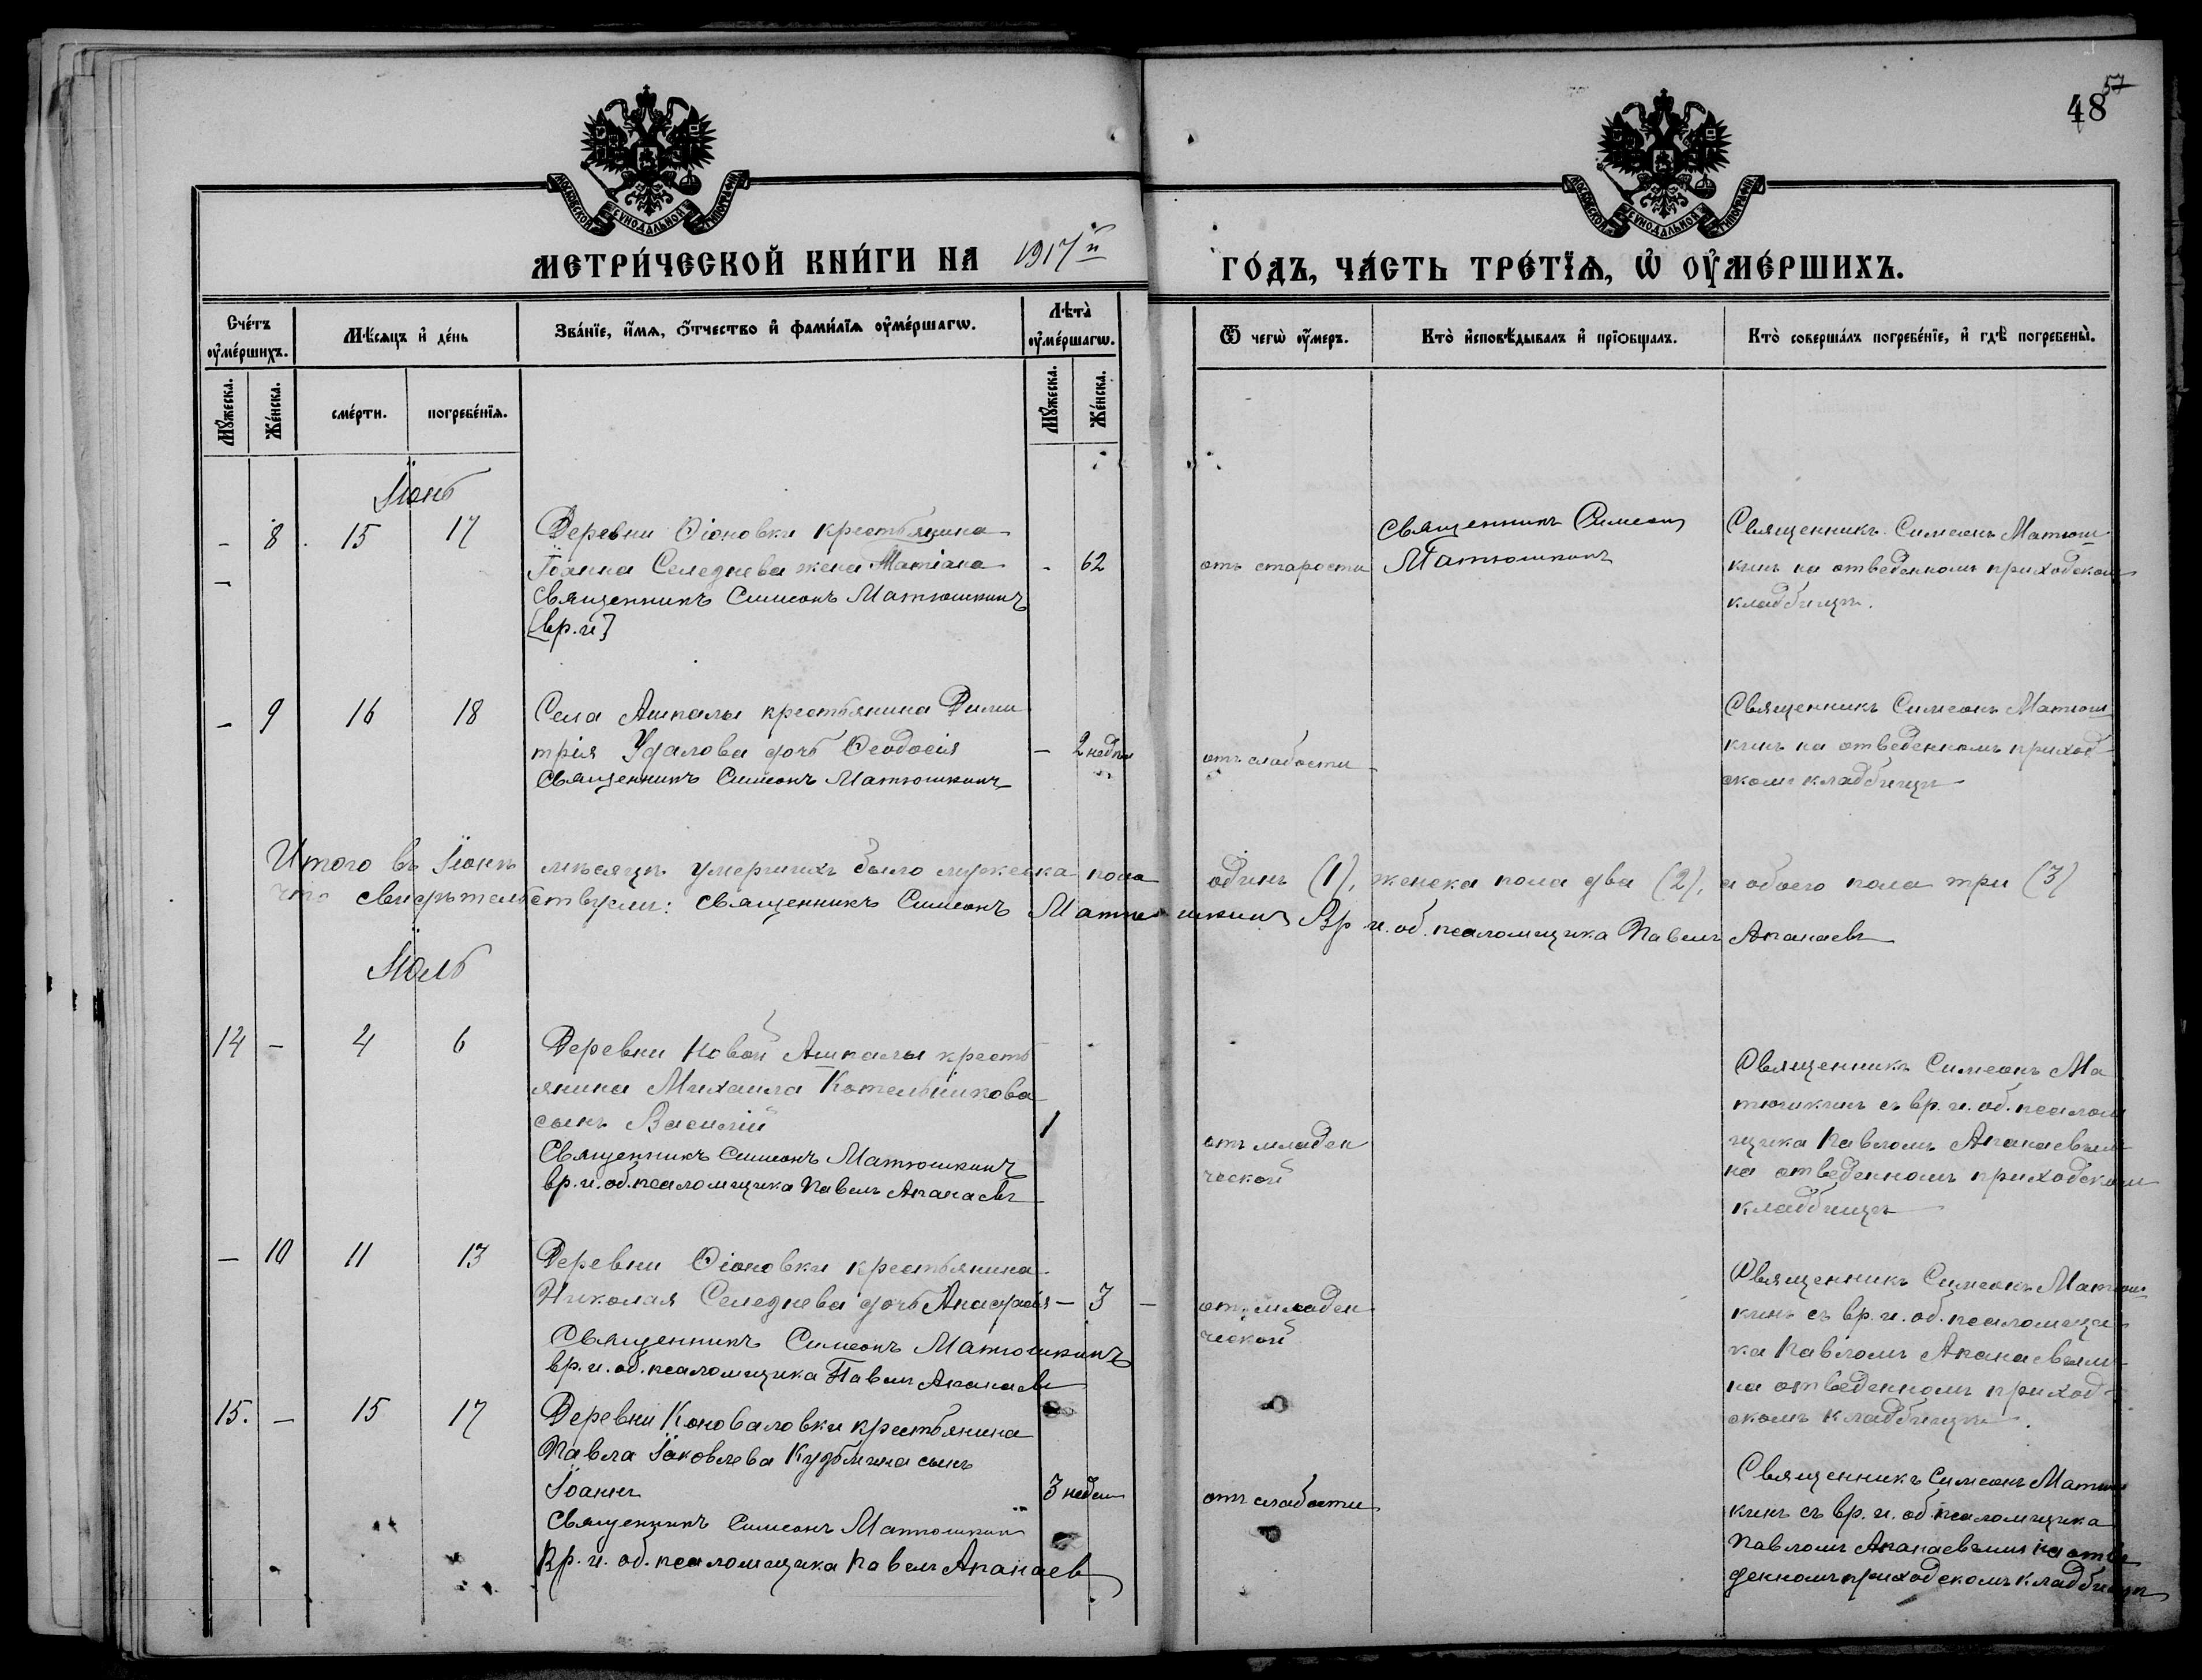 48
57
МОСКОВСКОЙ СѴНОДАЛЬНОЙ ТИПОГРАФІИ
МОСКОВСКОЙ СѴНОДАЛЬНОЙ ТИПОГРАФІИ
МЕТРИ́ЧЕСКОЙ КНИ́ГИ НА 1917й ГО́ДЪ, ЧА́СТЬ ТРЕ́ТЇѦ, Ѡ҆ ОУ҆МЕ́РШИХЪ.
Сче́тъ оу҆ме́ршихъ.
Мѣ́сѧцъ и҆ де́нь
Зва́нїе, и҆́мѧ, ѻ҆́тчество и҆ фами́лїѧ оу҆ме́ршагѡ.
Лѣ́та оу҆ме́ршагѡ.
Ѿ чегѡ̀ оу҆́меръ.
Кто̀ и҆сповѣ́дывалъ и҆ прїѻбща́лъ.
Кто̀ соверша́лъ погребе́нїе, и҆ гдѣ̀ погребены̀.
Мꙋ́жеска.
Же́нска.
сме́рти.
погребе́нїѧ.
Мꙋ́жеска.
Же́нска.
Іюнь
- 8 15 17
Деревни Ѳіоновки крестьянина
Іоанна Селезнева жена Матіана
Священникъ Симеонъ Матюшкинъ
[вр. и]
- 62
отъ старости
Священникъ Симеон
Матюшкинъ
Священникъ Симеонъ Матюш-
кинъ на отведенномъ приходском
кладбищѣ.
- 9 16 18
Села Ашпалы крестьянина Дими
трія Удалова дочь Ѳеодосія
Священникъ Симеонъ Матюшкинъ
- 2 недѣли
отъ слабости
Священникъ Симеонъ Матюш-
кинъ на отведенномъ приход-
скомъ кладбищѣ
Итого въ Іюнѣ мѣсяцѣ умершихъ было мужеска пола одинъ (1), женска пола два (2), а обоего пола три (3)
что свидѣтельствуем: священникъ Симеонъ Матюшкинъ Вр. и. об. псаломщика Павелъ Апанаевъ
Іюль
14 - 4 6
Деревни Новой Ашпалы кресть
янина Михаила Котельникова
сынъ Василій
Священникъ Симеонъ Матюшкинъ
вр. и. об. псаломщика Павелъ Апанаевъ
1
отъ младен
ческой
Священникъ Симеонъ Ма
тюшкинъ съ вр. и. об. псалом
щика Павломъ Апанаевымъ
на отведенномъ приходском
кладбищѣ
- 10 11 13
Деревни Ѳіоновки крестьянина
Николая Селезнева дочь Анастасія - 3 -
Священникъ Симеонъ Матюшкинъ
вр. и. об. псаломщика Павелъ Апанаевъ
отъ младен
ческой
Священникъ Симеонъ Матюш-
кинъ съ вр. и. об. псаломщи-
ка Павломъ Апанаевымъ
на отведенномъ приход-
скомъ кладбищѣ.
15. - 15 17
Деревни Коноваловки крестьянина
Павла Іаковлева Кузьмина сынъ
Іоаннъ
Священникъ Симеонъ Матюшкин
Вр. и. об. псаломщика Павел Апанаев
3 недели
отъ слабости
Священникъ Симеонъ Матюш
кинъ съ вр. и. об. псаломщика
Павломъ Апанаевымъ на отве
денномъ приходскомъ кладбищѣ